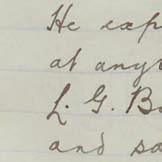 He exp
at any
L. G. B
and sa